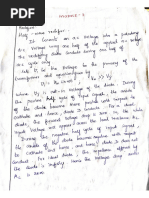 MODULE-4
Rectifier
Half-wave rectifier
It converts an a.c. voltage into a pulsating
d.c. voltage using one half of the applied a.c. voltage
The rectifying diode conducts during one half of the
a.c. cycle only
Let Vi be the voltage to the primary of the
transformer and given by the equation
where Vγ is the cut-in voltage of the diode. During
the positive half cycle of the input signal, the
anode of the diode becomes more positive with respect to
the cathode and hence diode D conducts. For an
ideal diode, the forward voltage drop is zero. So the whole
input voltage will appear across the load resistance RL
During negative half cycle of input signal, the
anode of the diode becomes negative with respect
to cathode and hence diode D does not
conduct. For an ideal diode, the impedance offered by
the diode is infinity. So the voltage drop across
RL is zero.